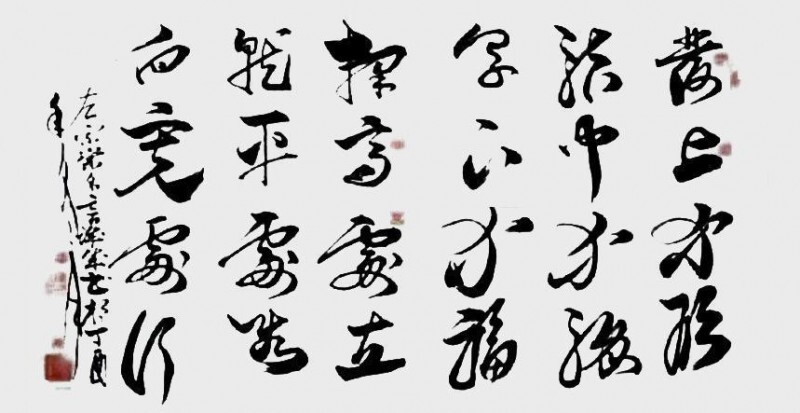 發上等願
結中等緣
享下等福
擇高處立
就平處坐
向寬處行
左宗棠名言
書於丁酉
年